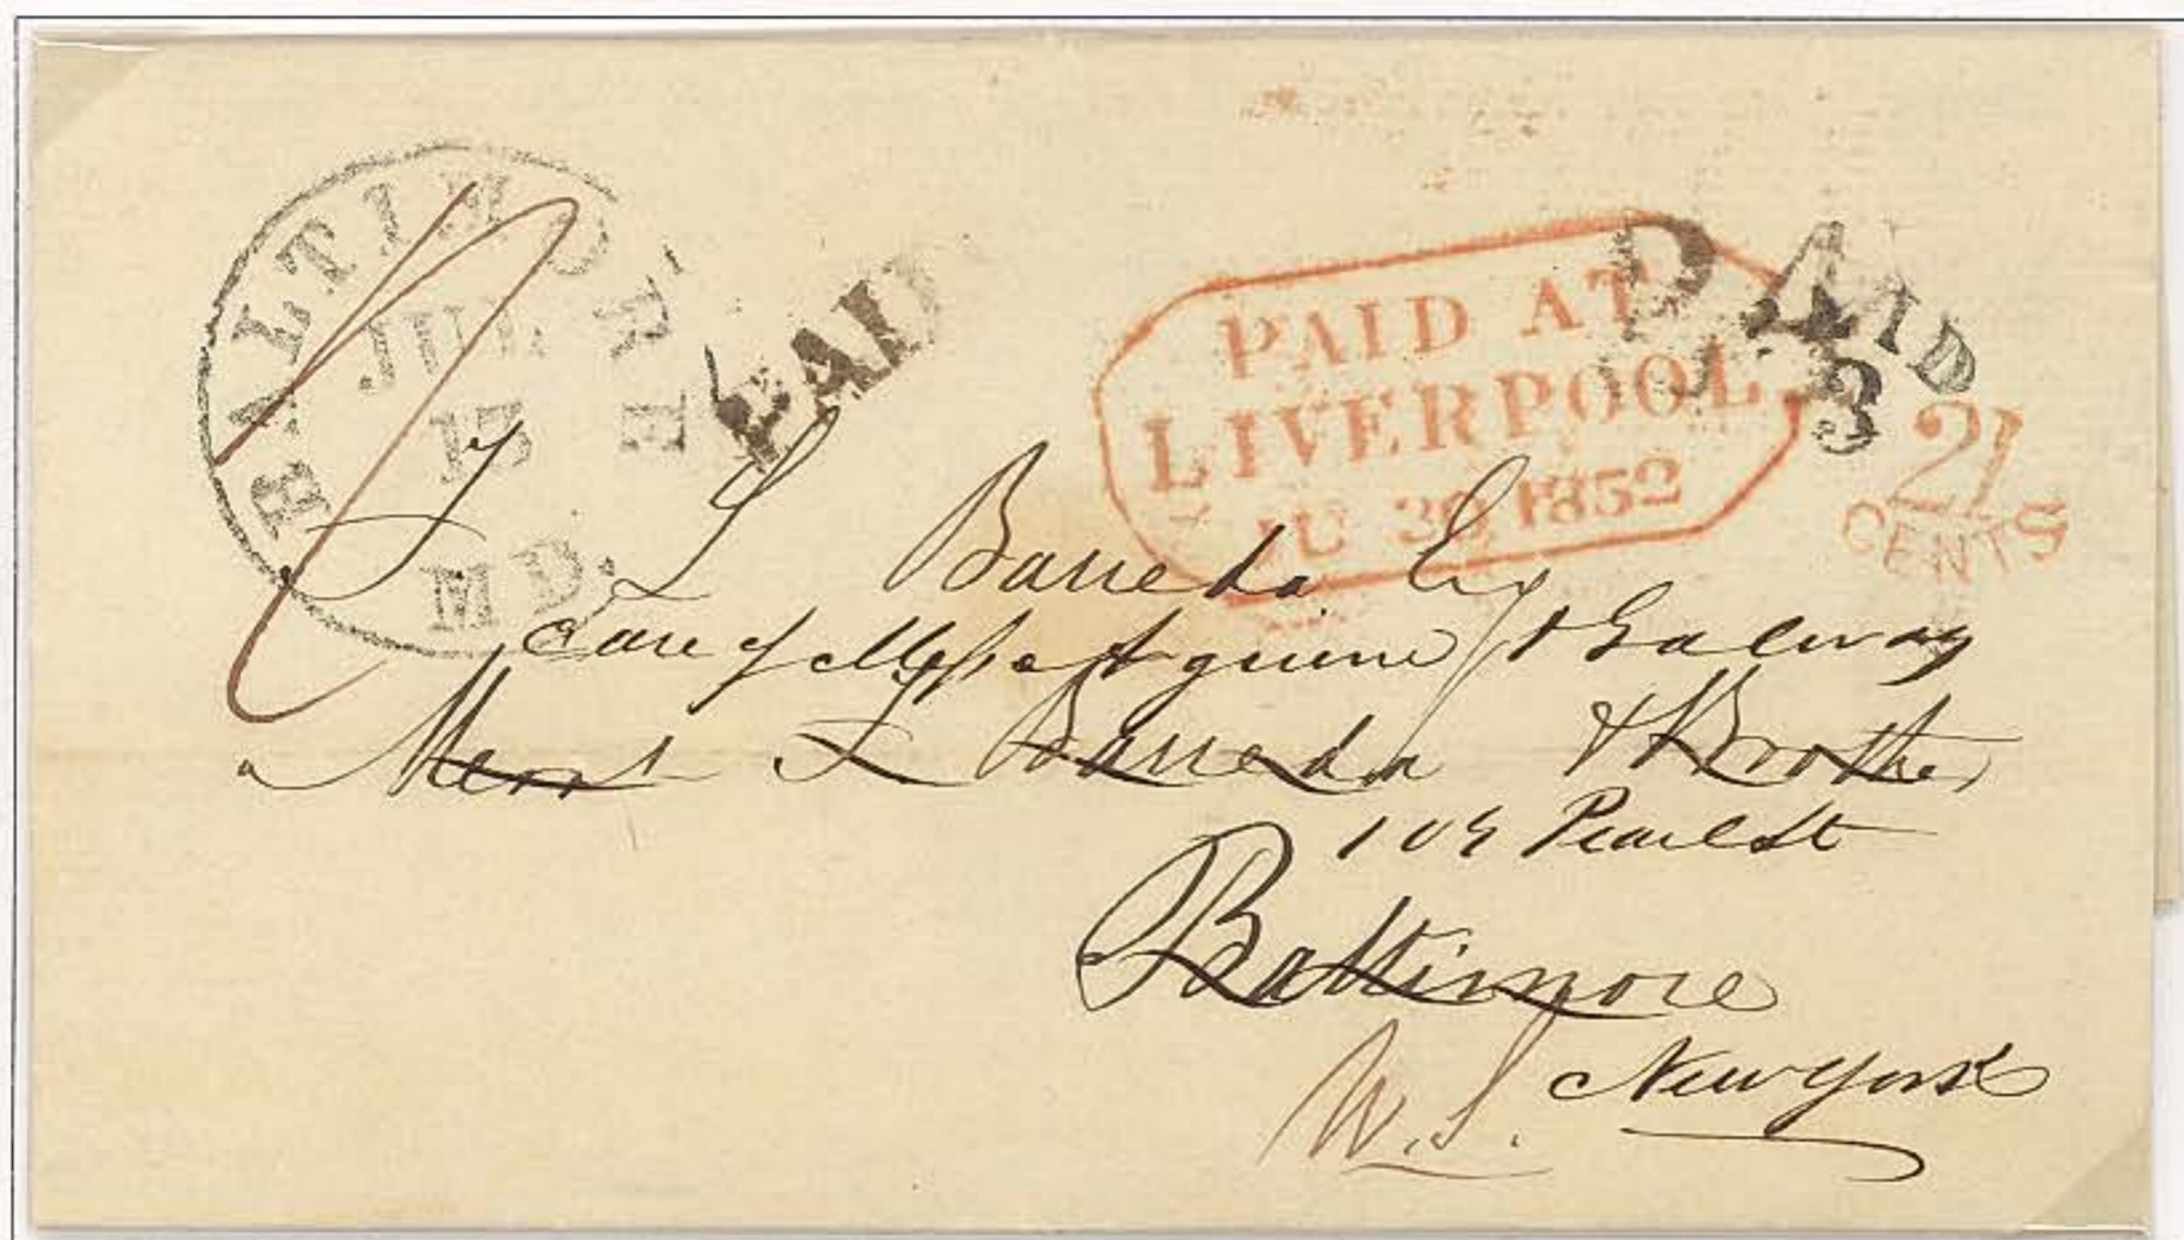 BALTIMORE
JUL
15
MD.
PAID
PAID AT
LIVERPOOL
JU 30 1852
PAID
PAID
3
21
CENTS
F L Barreda Esq
Care of Mess Aguirre & Galwey
Messrs F Barreda & Brother
109 Pearl St
Baltimore
New York